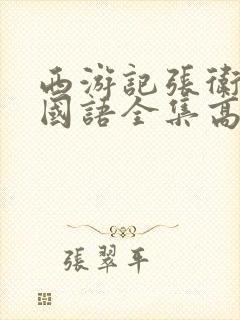 西游記張衛
國語全集高
張翠平